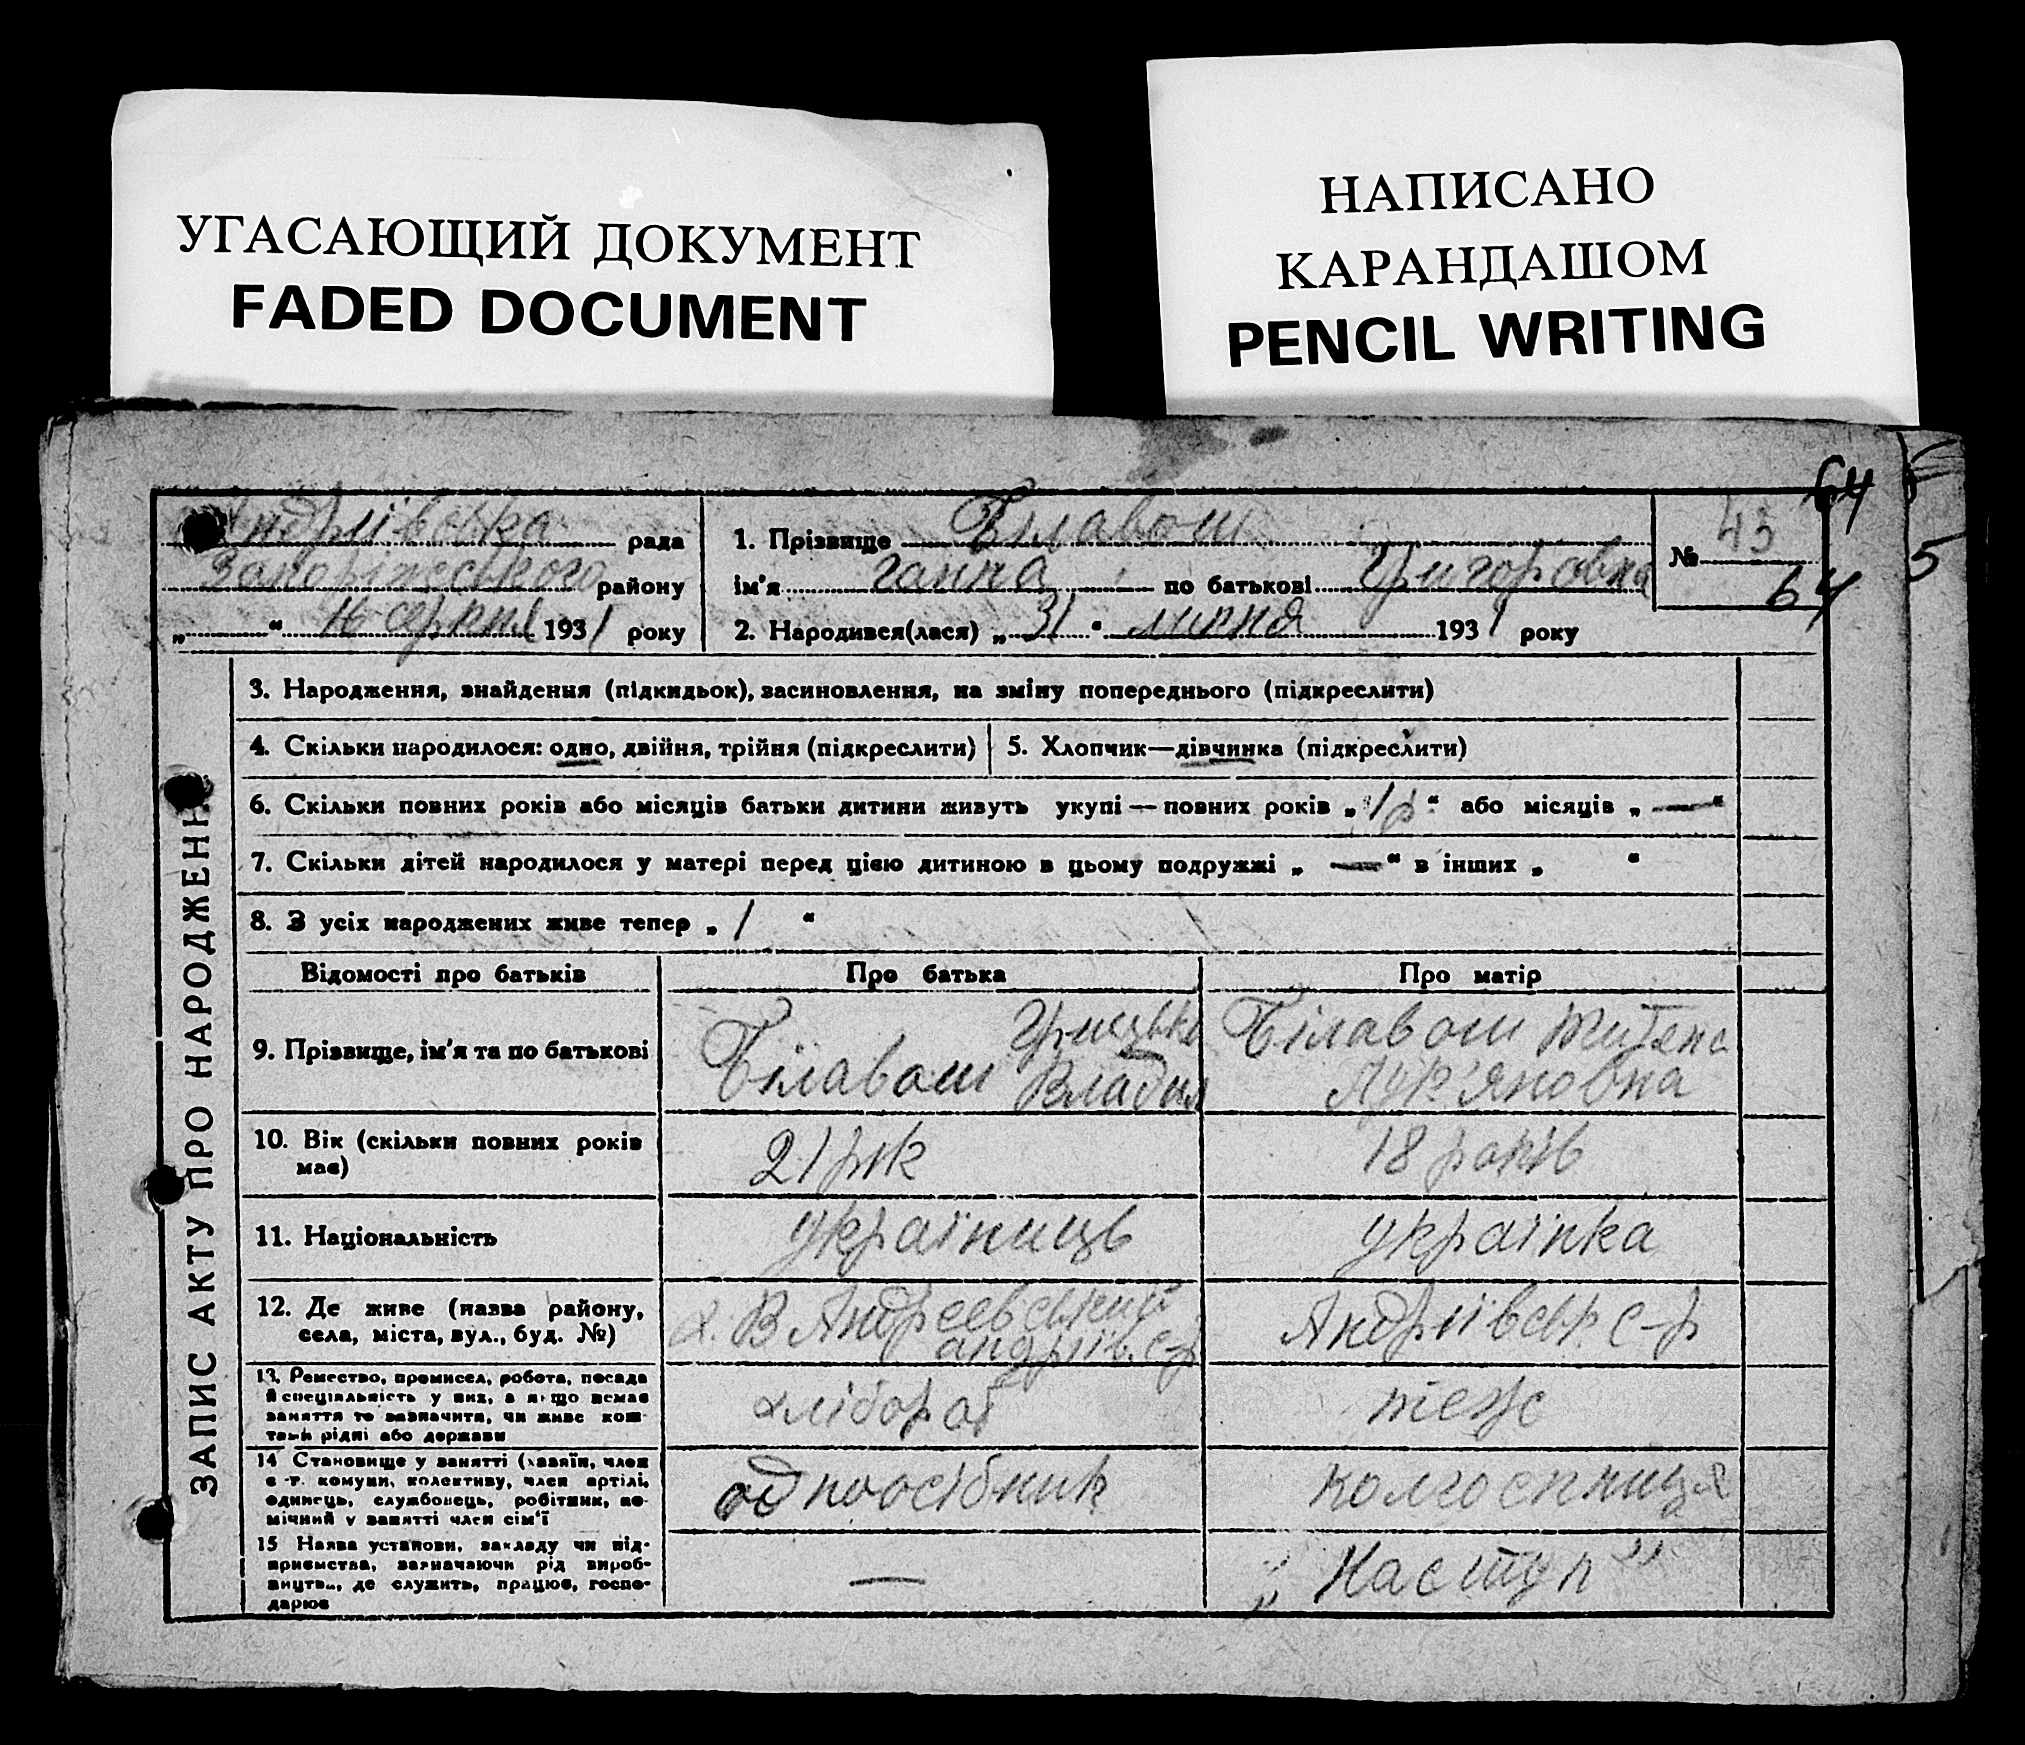 УГАСАЮЩИЙ ДОКУМЕНТ
FADED DOCUMENT
НАПИСАНО
КАРАНДАШОМ
PENCIL WRITING
64
5
Андріївська рада
Запоріжського району
„ “ 16 серпня 1931 року
1. Прізвище Білавош
ім'я Ганна по батькові Григоровна
2. Народився(лася) „ 31 “ липня 1931 року
№ 43
64
ЗАПИС АКТУ ПРО НАРОДЖЕННЯ
3. Народження, знайдення (підкидьок), засиновлення, на зміну попереднього (підкреслити)
4. Скільки народилося: одно, двійня, трійня (підкреслити)
5. Хлопчик—дівчинка (підкреслити)
6. Скільки повних років або місяців батьки дитини живуть укупі — повних років „ 1 р “ або місяців „ — “
7. Скільки дітей народилося у матері перед цією дитиною в цьому подружжі „ — “ в інших „ “
8. З усіх народжених живе тепер „ 1 “
Відомості про батьків
Про батька
Про матір
9. Прізвище, ім'я та по батькові
Грицько
Білавош Владим
Білавош
Лук'яновна
10. Вік (скільки повних років
має)
21 рік
18 років
11. Національність
українець
українка
12. Де живе (назва району,
села, міста, вул., буд. №)
х. В Андреевський
андріїв. с-р
Андріївськ с-р
13. Ремество, промисел, робота, посада
й спеціяльність у них, а якщо немає
заняття то зазначити, чи живе кош-
тами рідні або держави
хлібороб
теж
14 Становище у занятті (хазяїн, член
с.-г. комуни, колективу, член артілі,
одинець, службовець, робітник, по-
мічний у занятті член сім'ї
одноосібник
колгоспниця
15 Назва установи, закладу чи під-
приємства, зазначаючи рід вироб-
ництва, де служить, працює, госпо-
дарює
—
„ Наступ ”